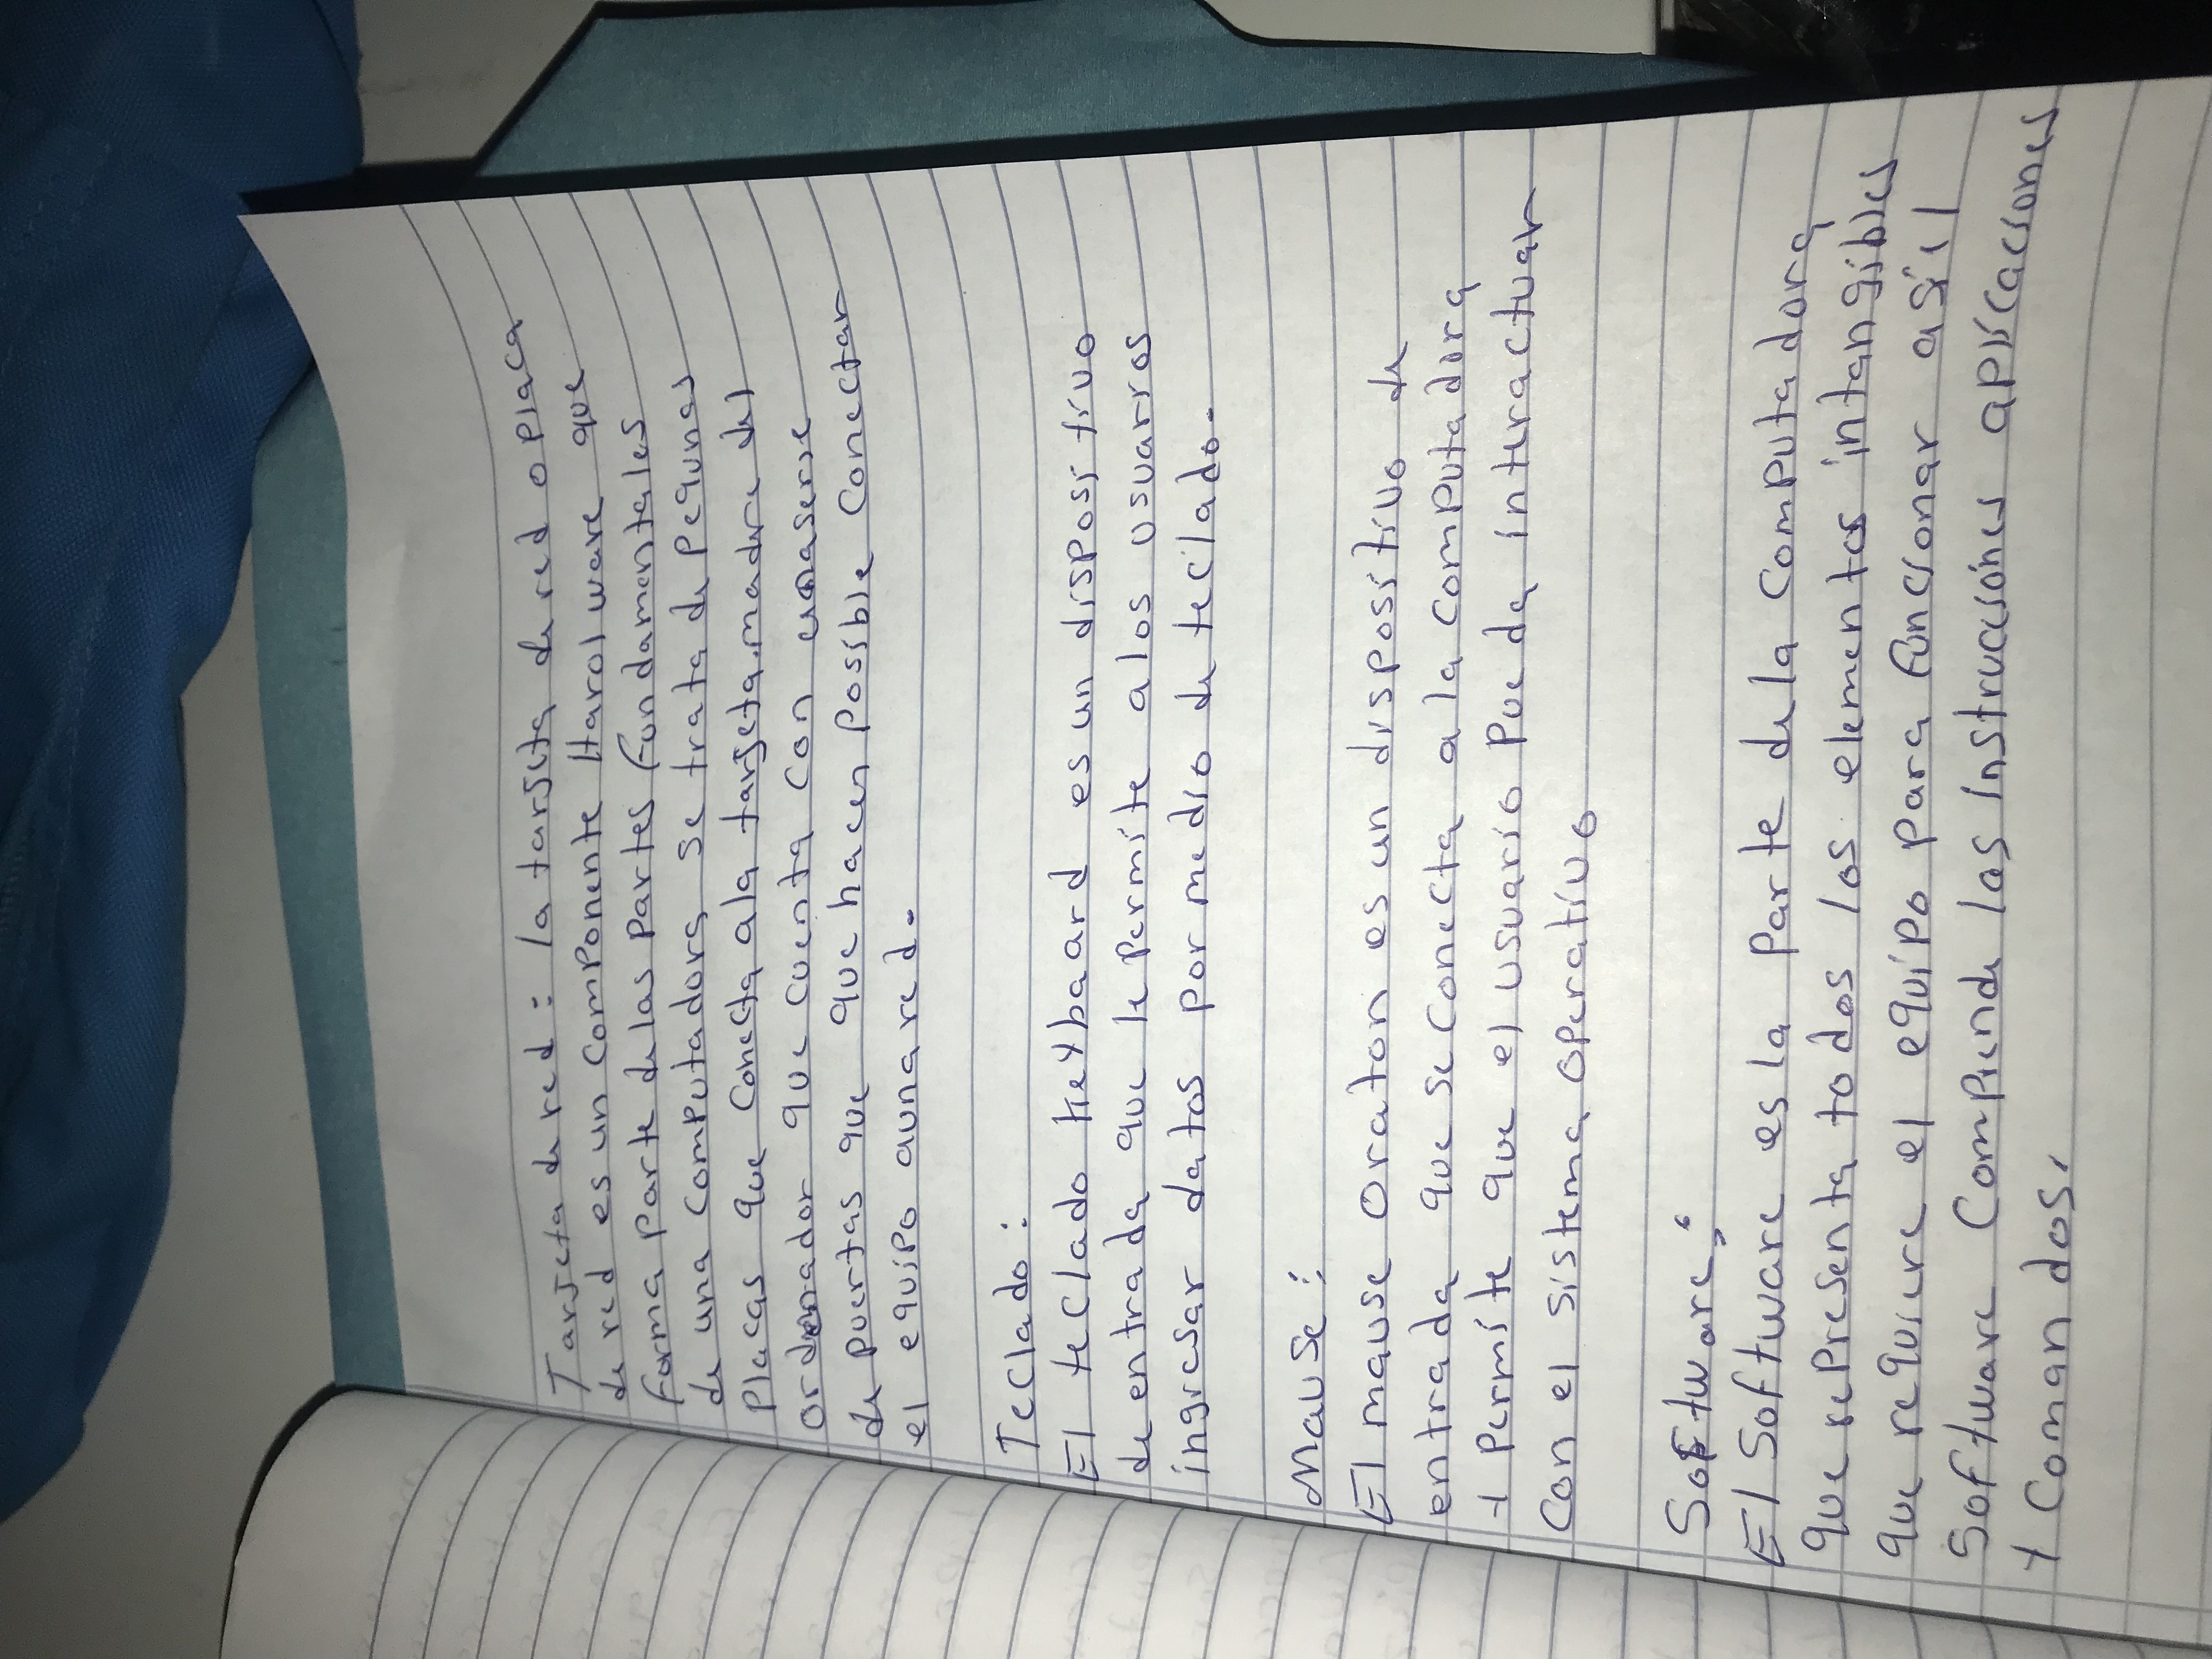 Tarjeta de red: la tarjeta de red o placa
de red es un componente Harolware que
forma parte de las partes fundamentales
de una computadora, se trata de pequnas
Placas que conecta ala tarjeta.madre del
ordenador que cuenta con unaserie
de puertas que que hacen posible conectar
el equipo auna red.
Teclado:
El teclado Keybaard es un dispositivo
de entrada que le permite alos usuarros
ingresar datos por medio de teclado.
Mause:
El mause Oraton es un dispositivo de
entrada que se conecta a la computadora
y permite que el usuario Pueda interactuar
con el sistema operativo
Software:
El Software es la parte dela computadora
que representa todos los elementos intangibles
que requiere el equipo para funcionar así il
Software Compiende las Instruciones aplicaciones
y Coman dos,